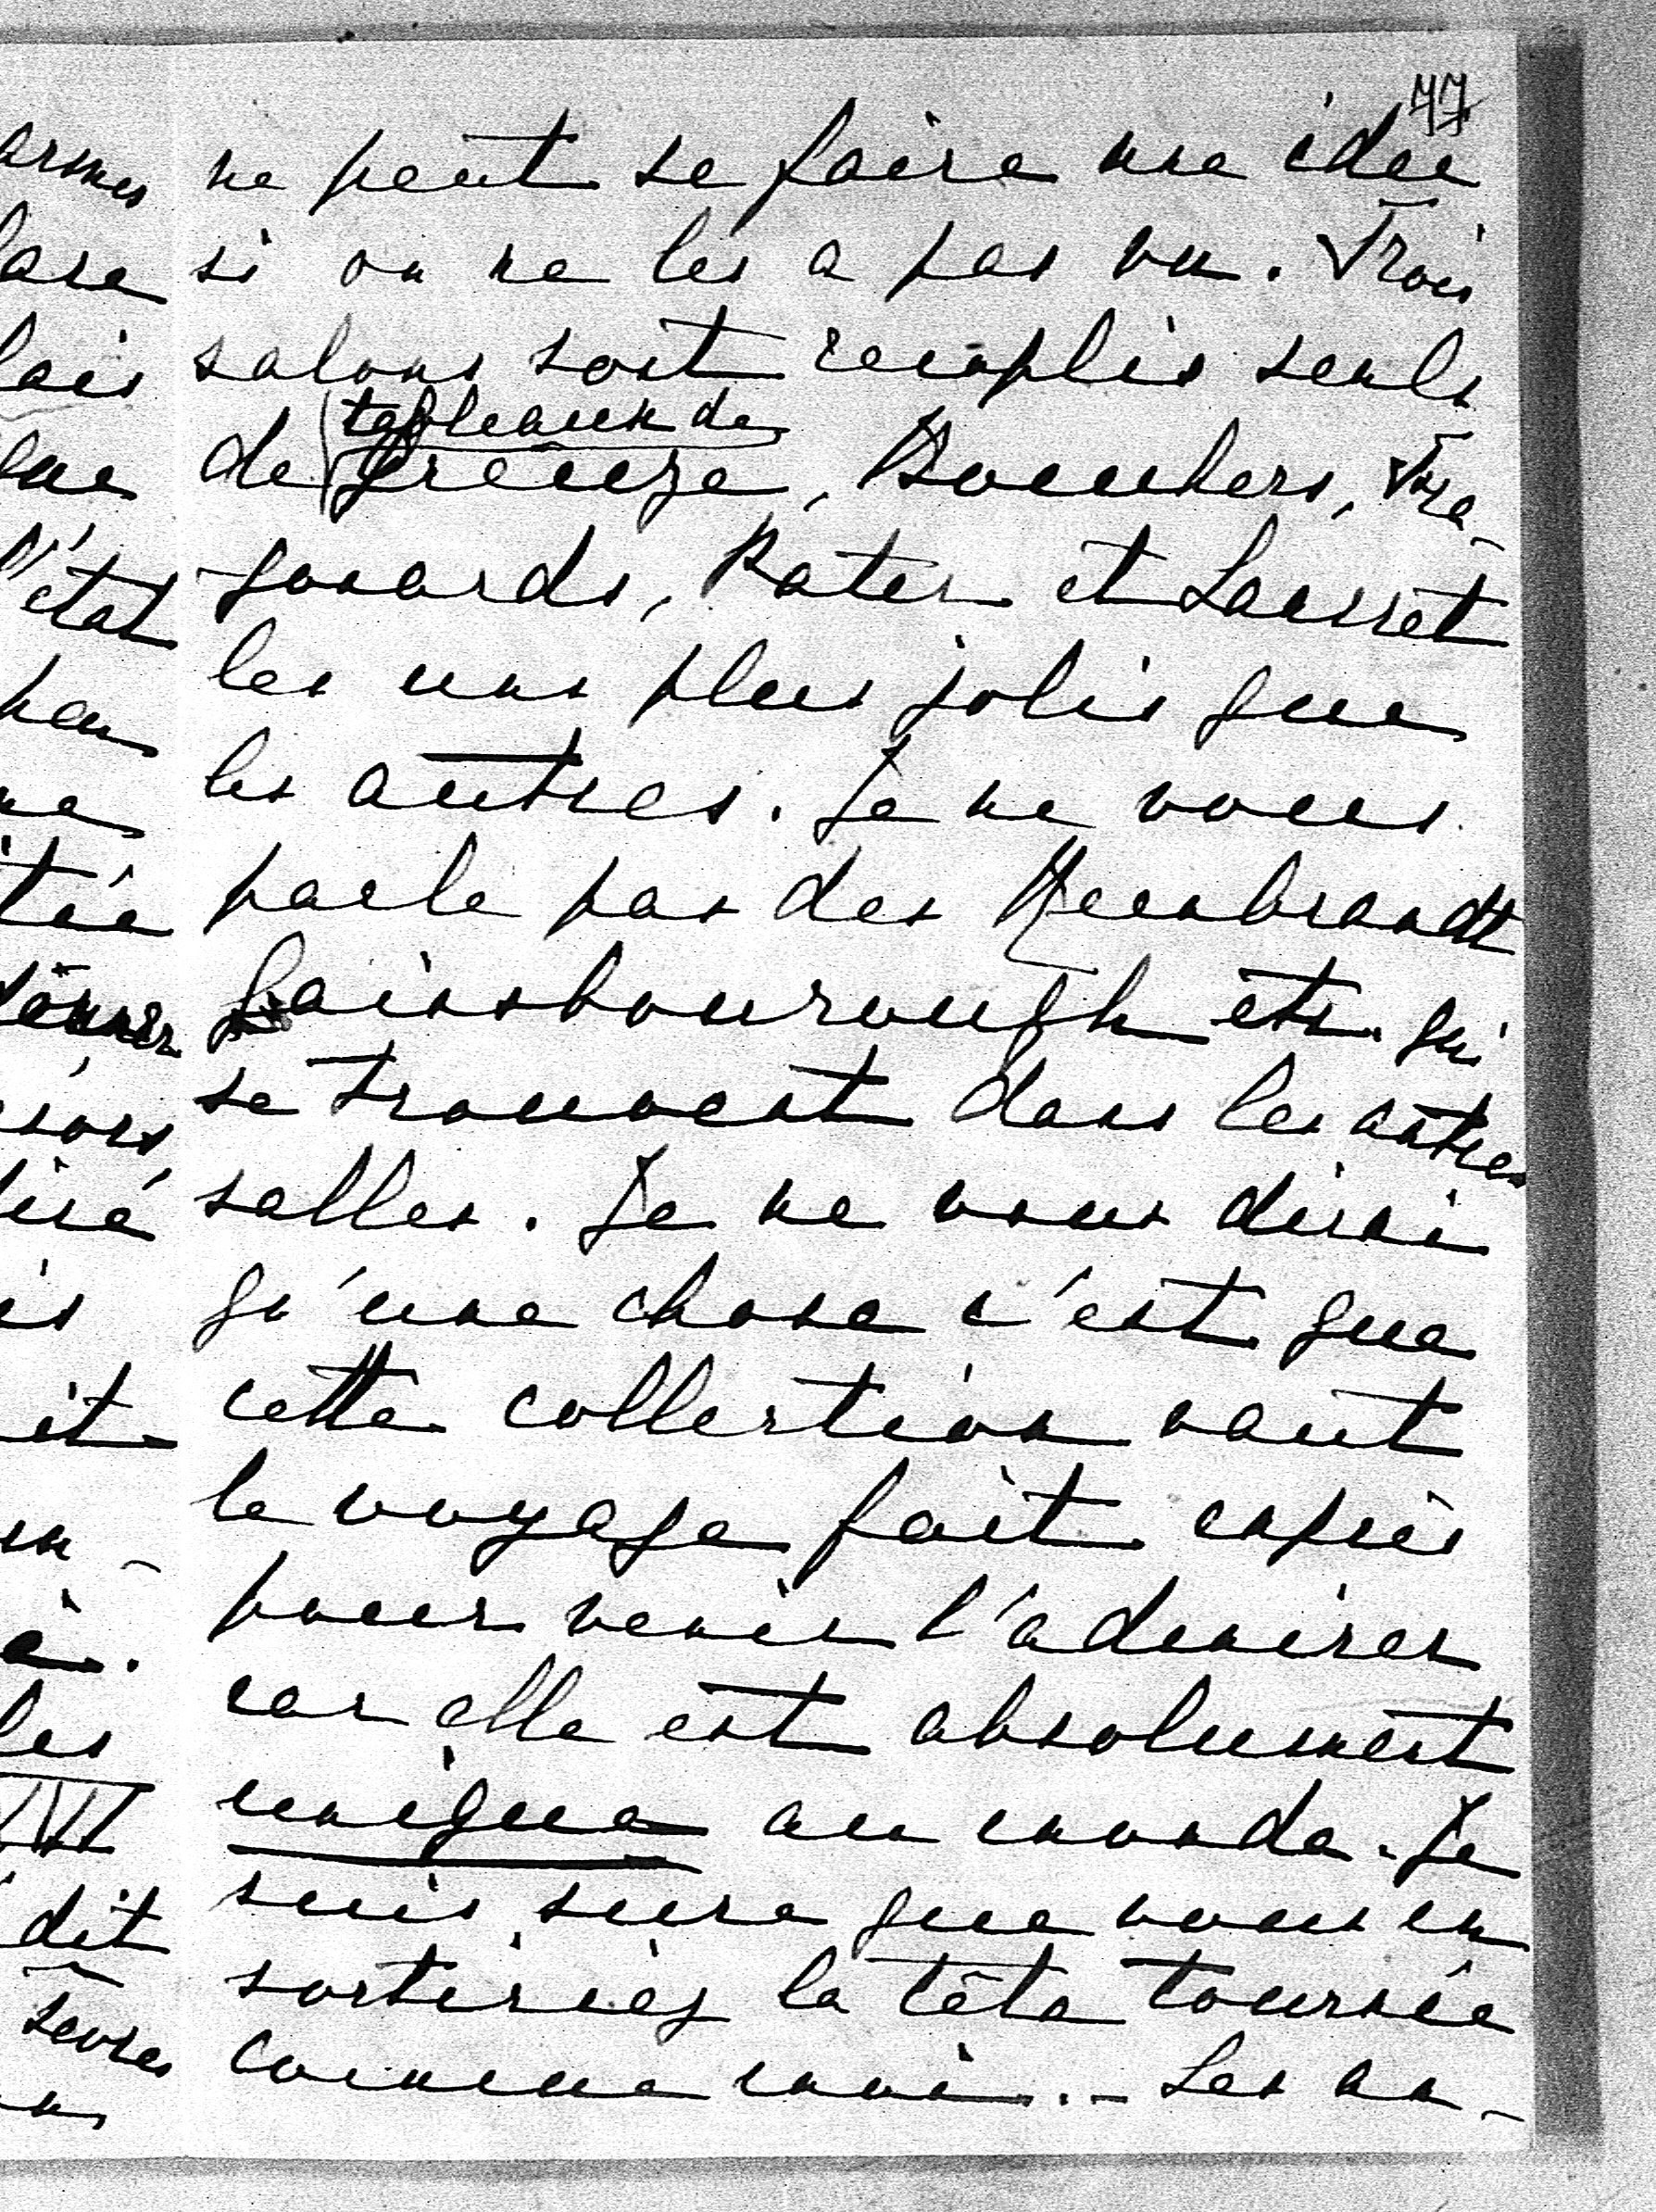 77
ne peut se faire une idée
si on ne les a pas vu. Trois
salons sont remplis seuls
tableaux de
de Greuze, Bouchers, Fra-
gonards, Pater et Lancret
les uns plus jolis que
les autres. Je ne vous
parle pas des Rembrandt
Gainsbourough etc. qui
se trouvent dans les autres
salles. Je ne vous dirai
qu'une chose c'est que
cette collection vaut
le voyage fait exprès
pour venir l'admirer
car elle est absolument
unique au monde. Je
suis sûre que vous en
sortiriez la tête tournée
comme moi. – Les an-